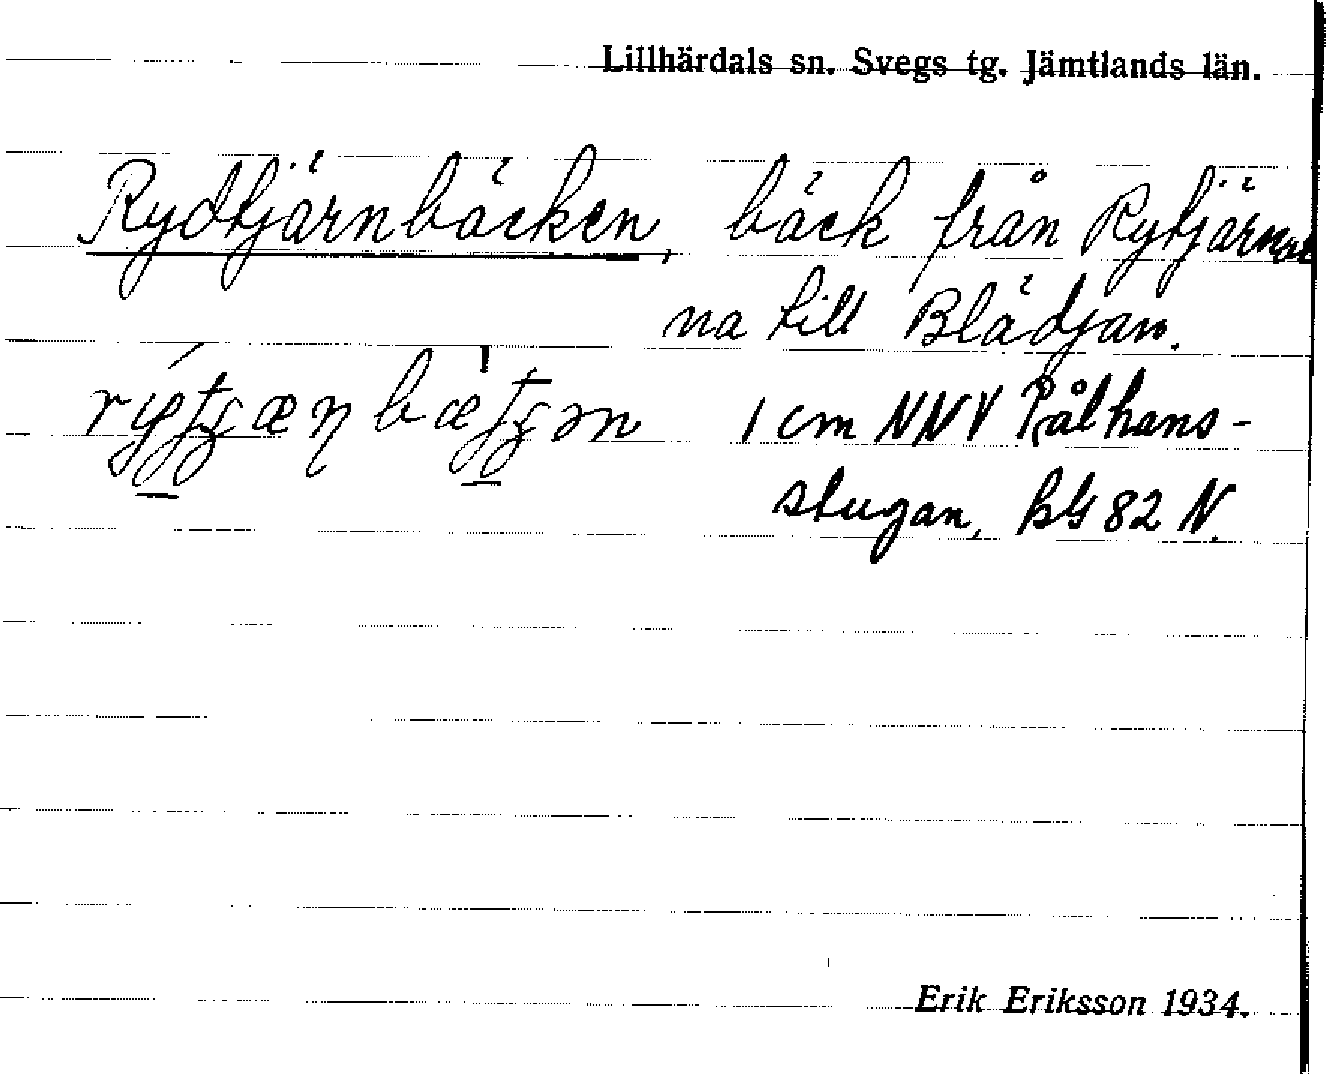 Lillhärdals sn. Svegs tg. Jämtlands län.
Rydtjärnbäcken, bäck från Rytjärnar
na till Blädjan.
1 cm NNV Pålhans-
stugan, BG 82 N.
Erik Eriksson 1934.